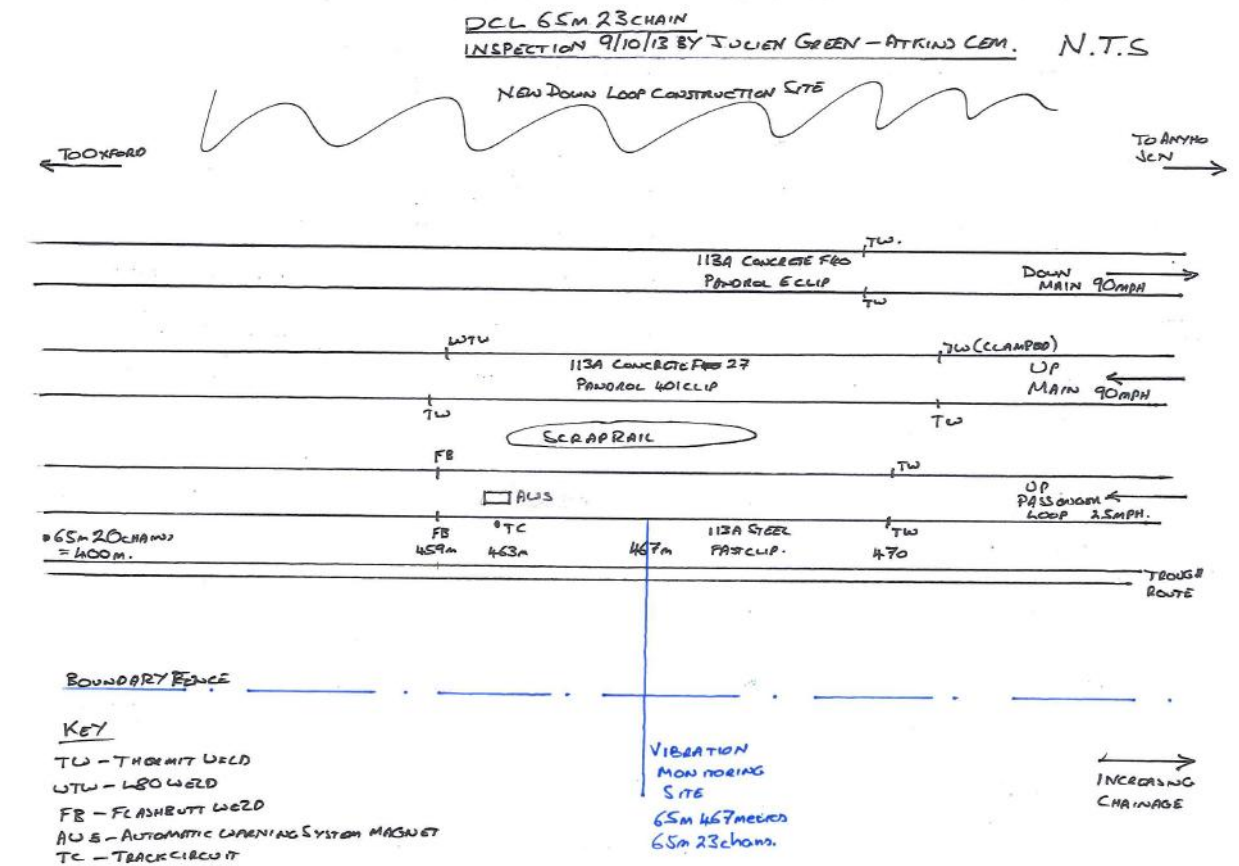 DCL 65M 23CHAIN
INSPECTION 9/10/13 BY JULIEN GREEN - ATKINS CEM.
N.T.S
NEW DOWN LOOP CONSTRUCTION SITE
TO OXFORD
TO AYNHO
JCN
TW.
113A CONCRETE F40
PANDROL E CLIP
DOWN
MAIN 90MPH
TW
WTW
TW (CLAMPED)
113A CONCRETE F40 27
PANDROL 401 CLIP
UP
MAIN 90MPH
TW
TW
SCRAP RAIL
FB
TW
AWS
UP
PASSENGER
LOOP 25MPH.
65M 20CHAINS
= 400M.
FB
459m
TC
463m
467m
113A STEEL
FASTCLIP.
TW
470
TROUGH
ROUTE
BOUNDARY FENCE
KEY
TW - THERMIT WELD
WTW - W80 WELD
FB - FLASHBUTT WELD
AWS - AUTOMATIC WARNING SYSTEM MAGNET
TC - TRACK CIRCUIT
VIBRATION
MONITORING
SITE
65M 467metres
65m 23chains.
INCREASING
CHAINAGE